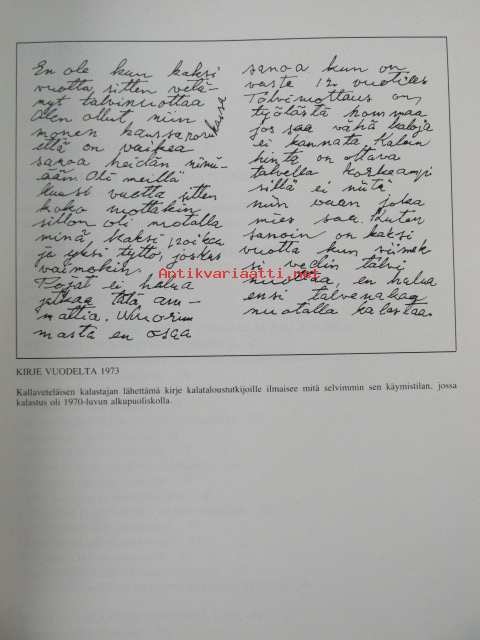 En ole kun kaksi
vuotta sitten vetä-
nyt talvinuottaa
Olen ollut niin
monen kanssa
että on vaikea
sanoa heidän nimi-
ään. Oli meillä
kuusi vuotta sitten
koko nuottakin
sillon oli nuotalla
minä kaksi poikaa
ja yksi tyttö, joskus
vaimokin.
Pojat ei halua
jatkaa tätä am-
mattia. Nuorim
masta en osaa
sanoa kun on
vasta 12 vuotias
Talvinuottaus on
työlästä hommaa
jos saa vähä kaloja
ei kannata Kalan
hinta on oltava
talvella korkeampi
sillä ei niitä
niin vaan joka
mies saa. Kuten
sanoin on kaksi
vuotta kun viimek
si vedin talvi
nuottaa, en halua
ensi talvenakaa
nuotalla kalastaa.
Antikvariaatti.net
KIRJE VUODELTA 1973
Kallaveteläisen kalastajan lähettämä kirje kalataloustutkijoille ilmaisee mitä selvimmin sen käymistilan, jossa
kalastus oli 1970-luvun alkupuoliskolla.